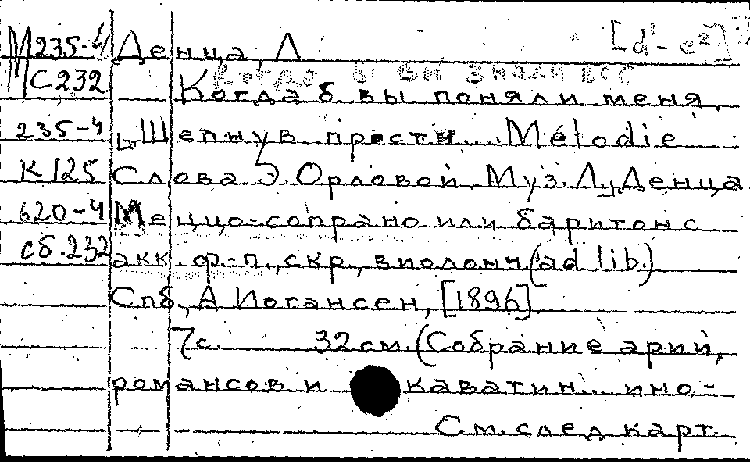 М 235-4 Денца, Л [d'- e²]
С 232 Когда б вы знали все
Когда б вы поняли меня,
235-4 Шепнув прости... Mélodie
К 125 Слова Э. Орловой. Муз. Л. Денца
620-4 Меццо-сопрано или баритон с
сб.232 акк. ф-п., скр., виолонч (ad lib.)
Спб, А Иогансен, [1896]
7с. 32см. (Собрание арий,
романсов и каватин... ино-
См. след карт.